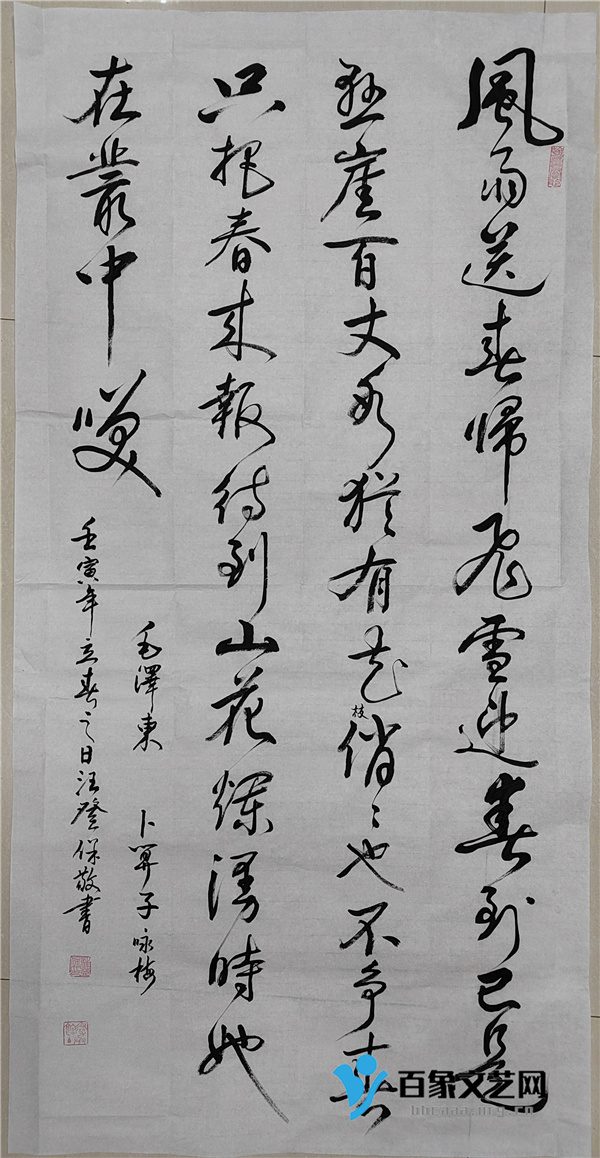 風雨送春歸飛雪迎春到已是
懸崖百丈冰猶有花枝俏俏也不争春
只把春來報待到山花爛漫時她
在叢中笑
毛澤東 卜算子 咏梅
壬寅年立春之日汪登保敬書
百象文艺网